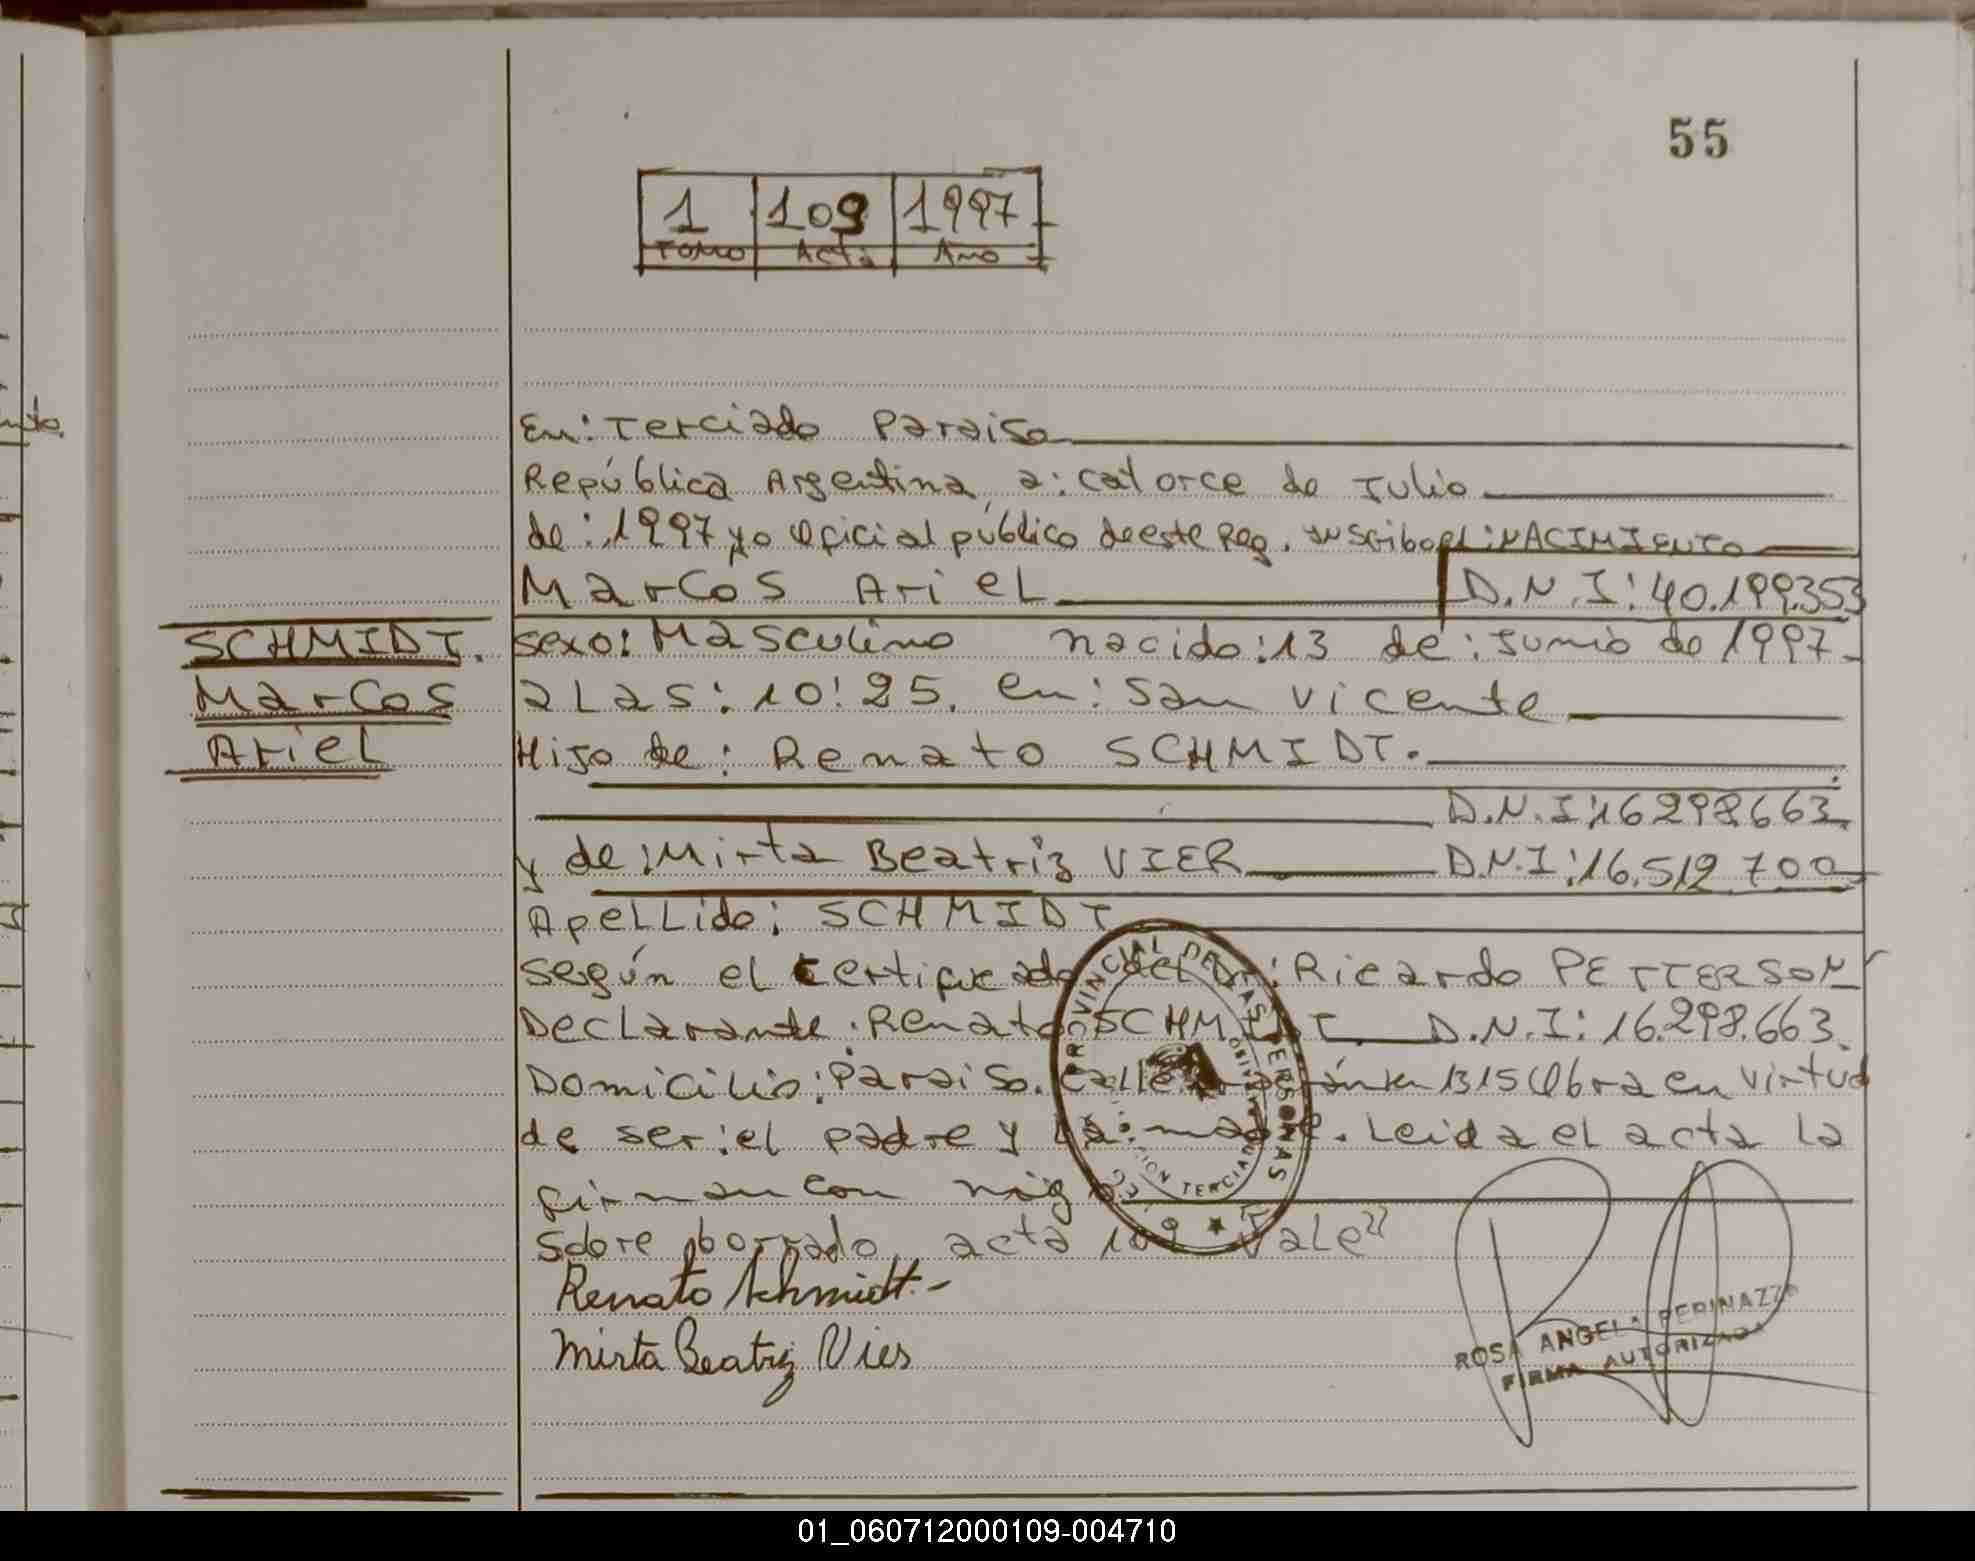 55
1 109 1997
Tomo Acta Ano
En: Terciado Paraiso
República Argentina, a: catorce de Julio
de: 1997 yo Oficial público de este Reg. inscribo el: NACIMIENTO
Marcos Ariel D.N.I: 40.199.353
SCHMIDT.
Marcos
Ariel
sexo: Masculino nacido: 13 de: Junio de 1997
a Las: 10:25. en: San Vicente
Hijo de: Renato SCHMIDT.
D.N.I: 16.298.663.
y de: Mirta Beatriz VIER D.N.I: 16.512.700
Apellido: SCHMIDT
según el certificado del Dr: Ricardo PETTERSON
Declarante: Renato SCHMIDT. D.N.I: 16.298.663.
Domicilio: Paraiso. Calle 1315 Obra en virtud
de ser: el padre y La: madre. Leida el acta la
firman con migo
Sobre borrado, acta 109 Vale"
PROVINCIAL DE LAS PERSONAS
TERCIADO
Renato Schmidt.-
Mirta Beatriz Vier
ROSA ANGELA PERINAZZO
FIRMA AUTORIZADA
01_060712000109-004710